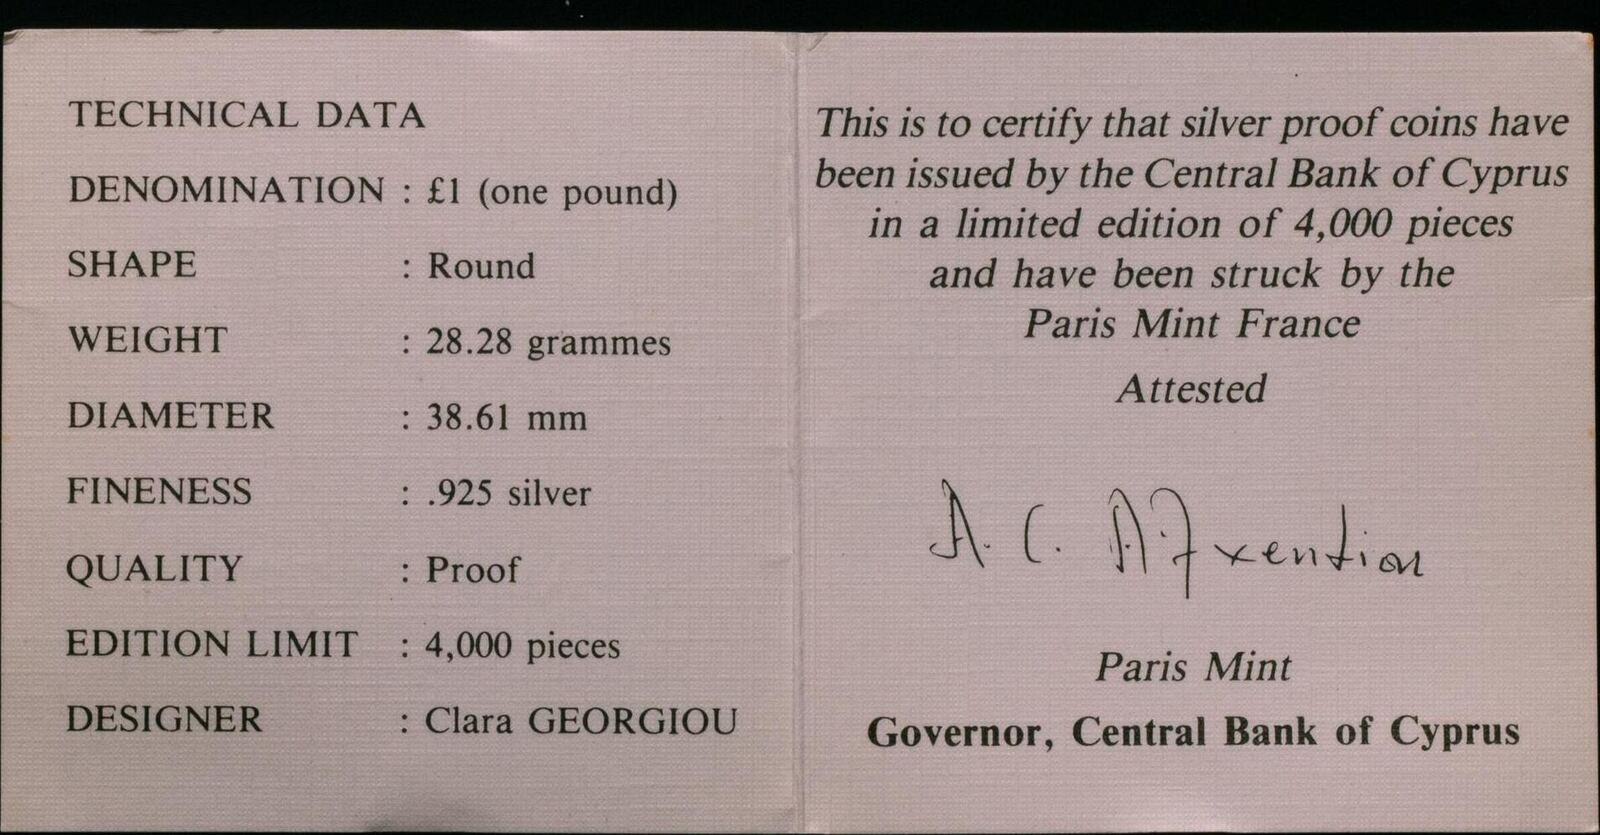 TECHNICAL DATA
DENOMINATION : £1 (one pound)
SHAPE : Round
WEIGHT : 28.28 grammes
DIAMETER : 38.61 mm
FINENESS : .925 silver
QUALITY : Proof
EDITION LIMIT : 4,000 pieces
DESIGNER : Clara GEORGIOU
This is to certify that silver proof coins have
been issued by the Central Bank of Cyprus
in a limited edition of 4,000 pieces
and have been struck by the
Paris Mint France
Attested
A. C. Afxentiou
Paris Mint
Governor, Central Bank of Cyprus